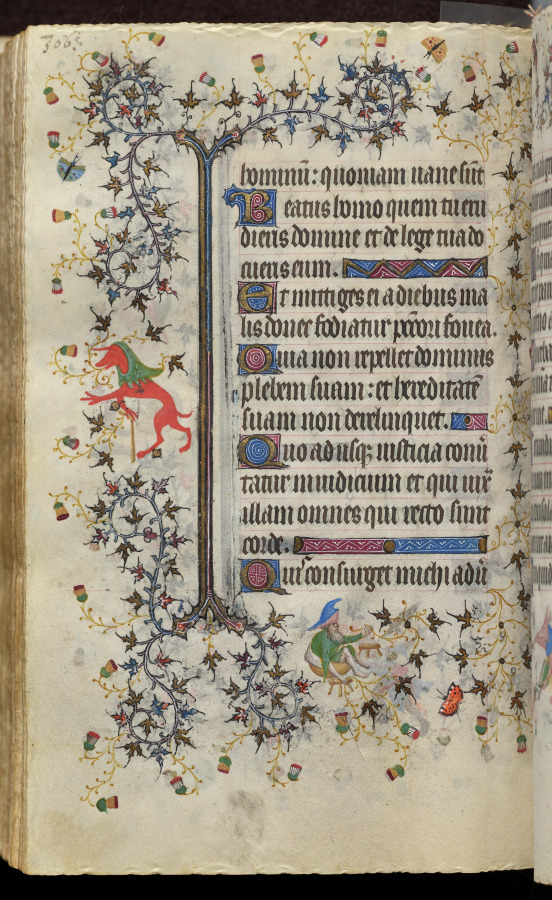 hominū: quoniam uane sūt
Beatus homo quem tu eru
dieris domine et de lege tua do
cueris eum.
Et mittiges ei a diebus ma
lis donec fodiatur pccori fouea.
Quia non repellet dominus
plebem suam: et hereditatē
suam non derelinquet.
Quo adusqꝫ iusticia conū
tatur in iudicium et qui iux̄
illam omnes qui recto sunt
corde.
Quis consurget michi adū